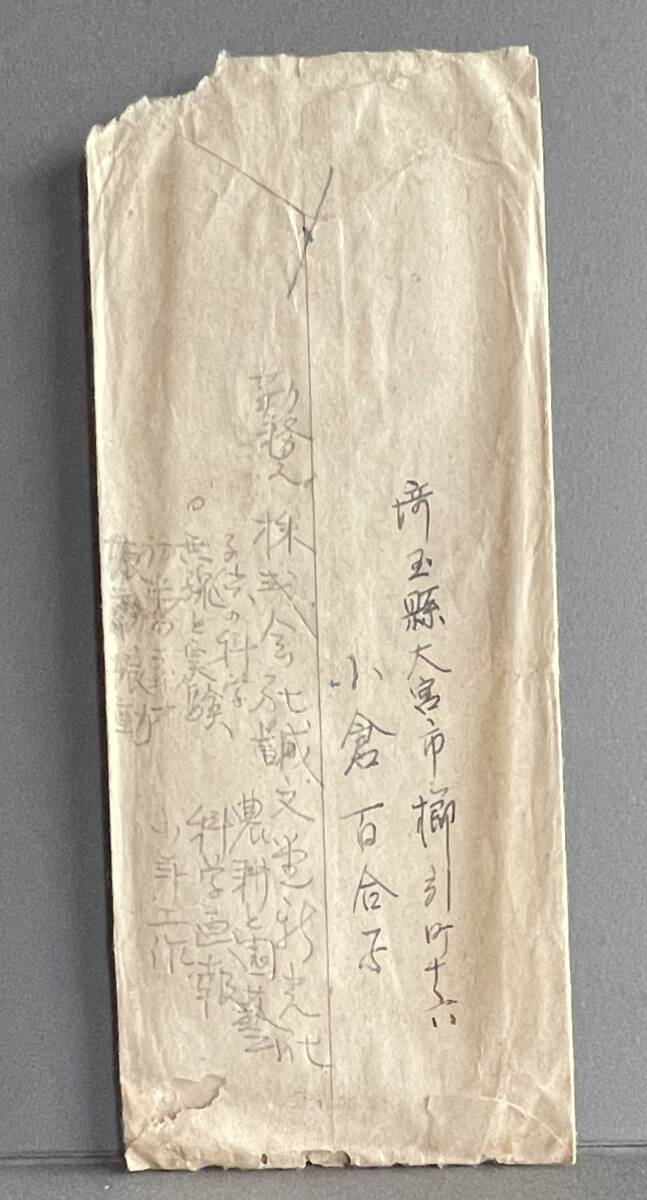 埼玉縣大宮市櫛引町
小倉百合子
勤務先 株式会社誠文堂新光社
子供の科学
農耕と園藝
○無線と実験
科学画報
少年工作